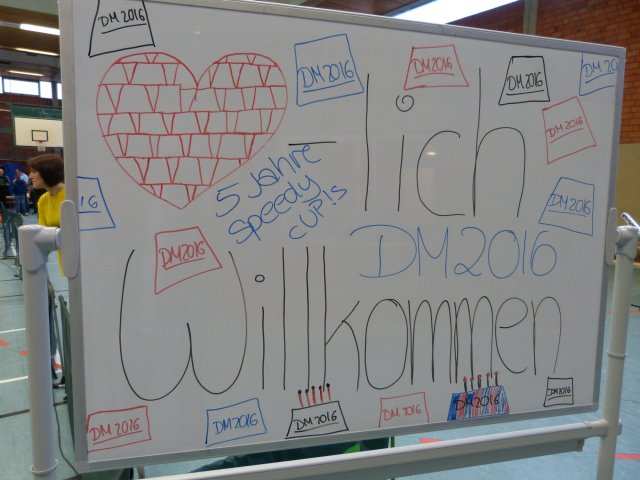 DM 2016
DM2016
DM2016
DM2016
DM2016
-lich
DM2016
5 Jahre
Speedy
CUP!s
DM2016
DM2016
DM2016
Willkommen
DM2016
DM 2016
DM 2016
DM 2016
DM 2016
DM2016
DM2016